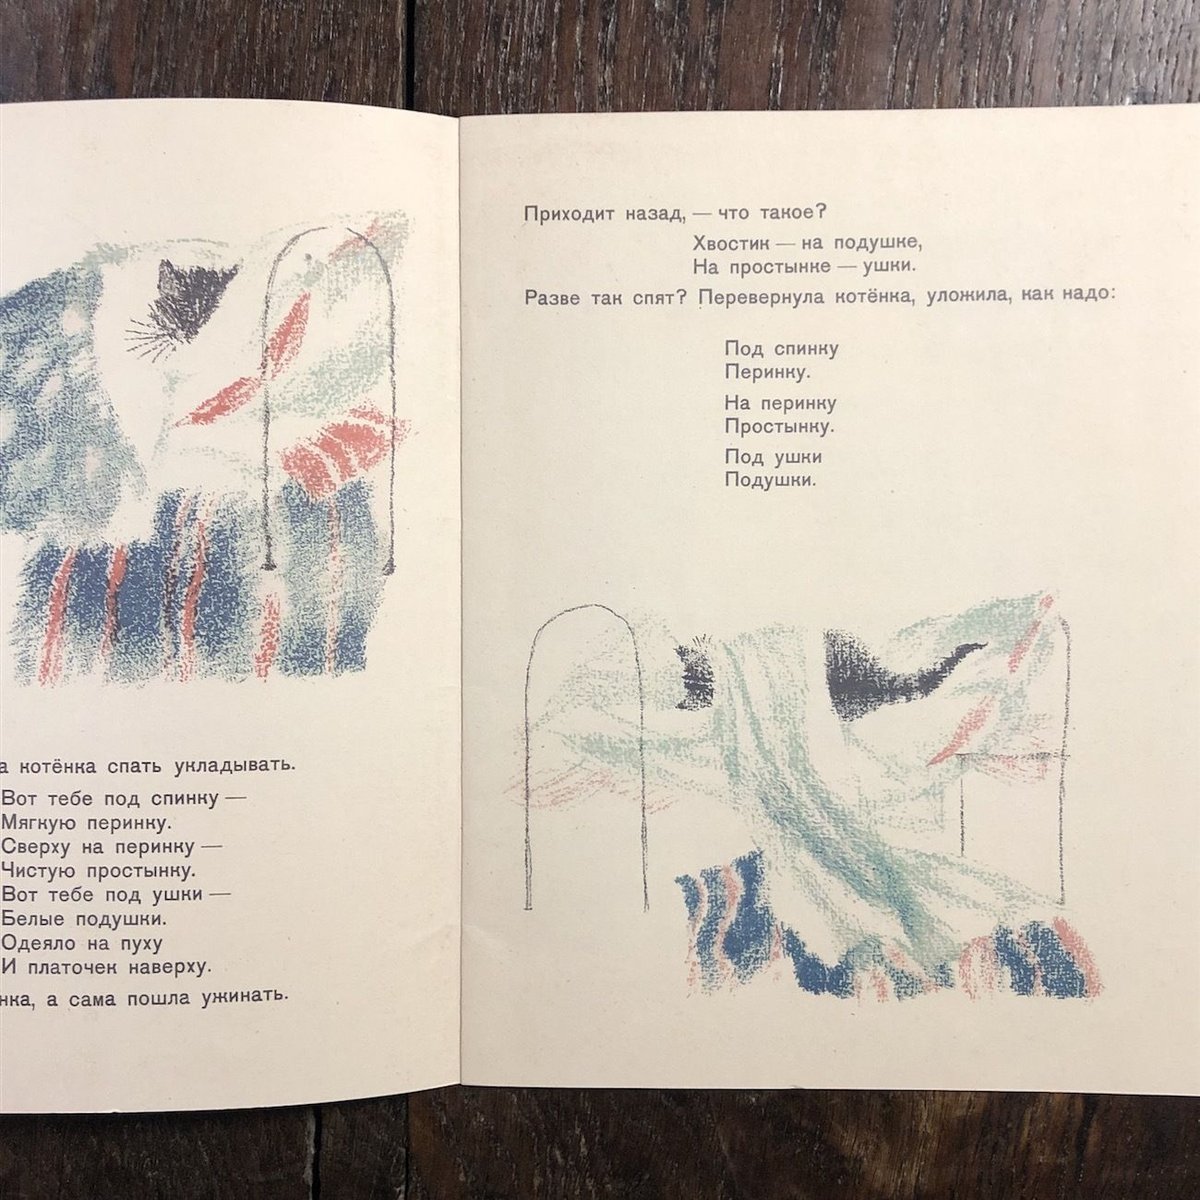 а котёнка спать укладывать.
Вот тебе под спинку —
Мягкую перинку.
Сверху на перинку —
Чистую простынку.
Вот тебе под ушки —
Белые подушки.
Одеяло на пуху
И платочек наверху.
нка, а сама пошла ужинать.
Приходит назад, — что такое?
Хвостик — на подушке,
На простынке — ушки.
Разве так спят? Перевернула котёнка, уложила, как надо:
Под спинку
Перинку.
На перинку
Простынку.
Под ушки
Подушки.